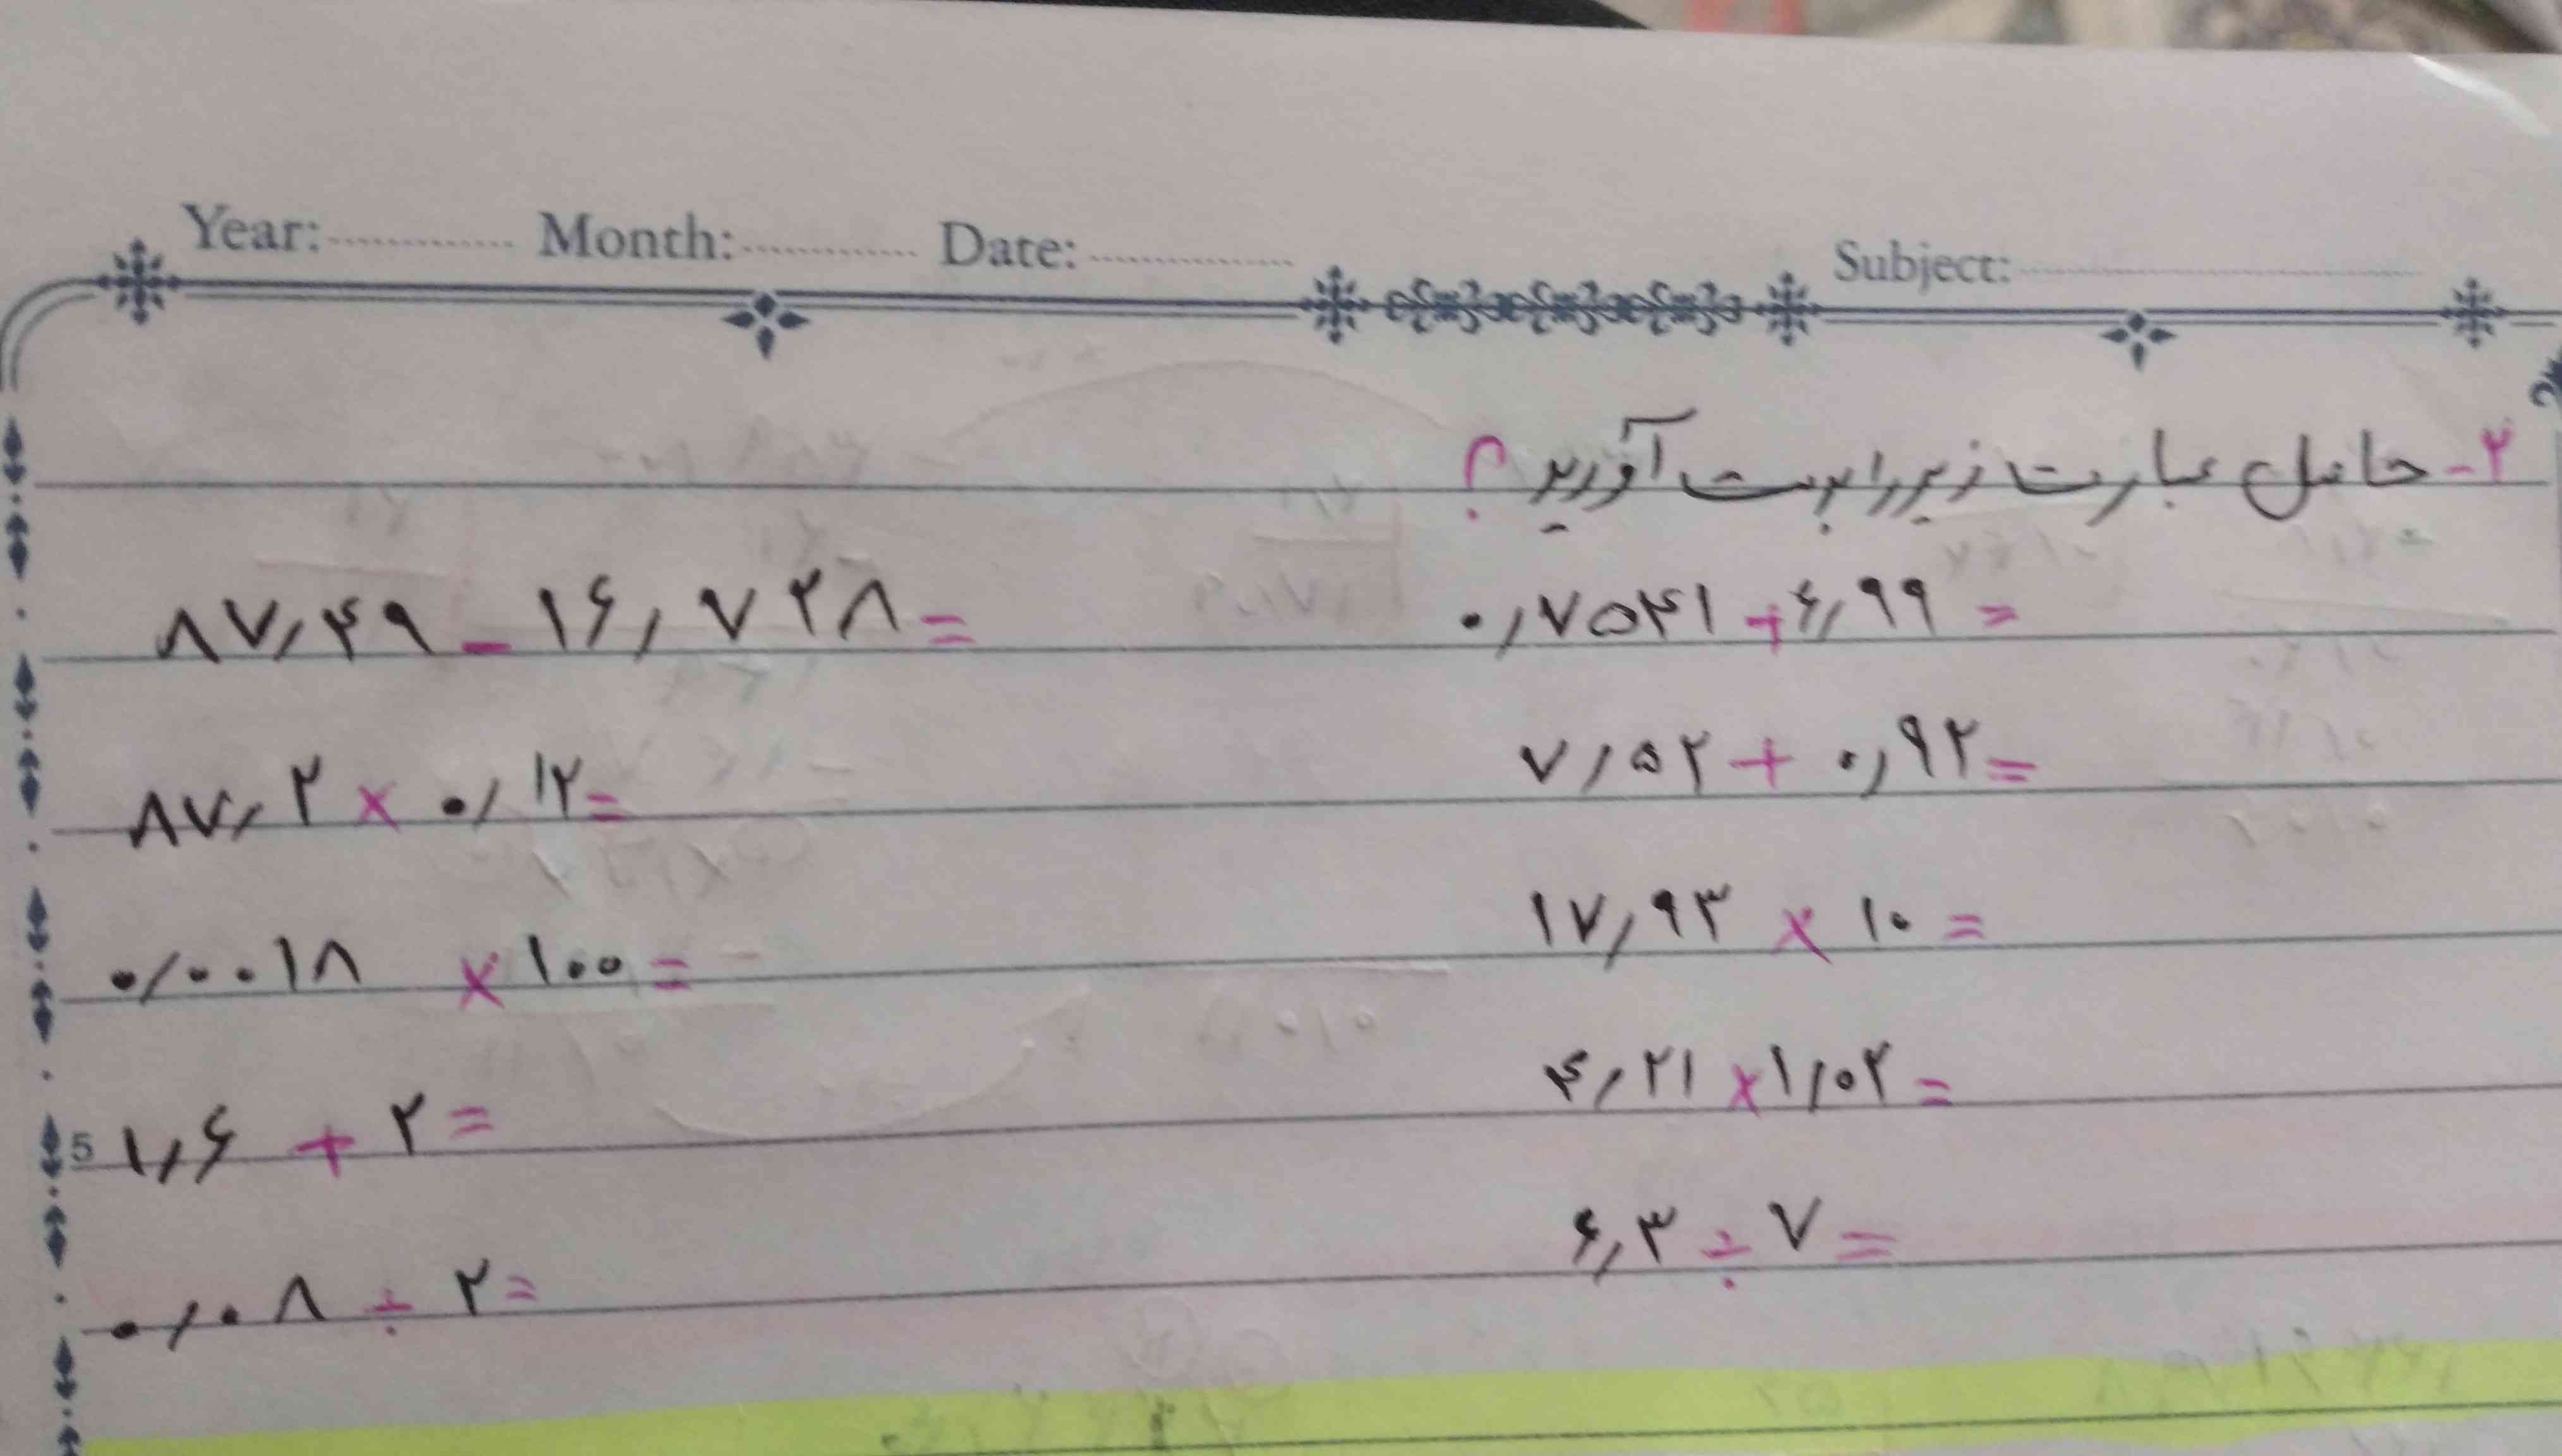 Year: Month: Date: Subject:
۲- حاصل عبارت زیر را بدست آورید؟
۰٫۷۵۴۱ + ۶٫۹۹ =
۸۷٫۴۹ - ۱۶٫۷۲۸ =
۷٫۵۲ + ۰٫۹۲ =
۸۷٫۲ × ۰٫۱۲ =
۱۷٫۹۳ × ۱۰ =
۰٫۰۰۱۸ × ۱۰۰ =
۴٫۲۱ × ۱٫۰۲ =
5
۱٫۶ + ۲ =
۶٫۳ ÷ ۷ =
۰٫۰۸ ÷ ۲ =